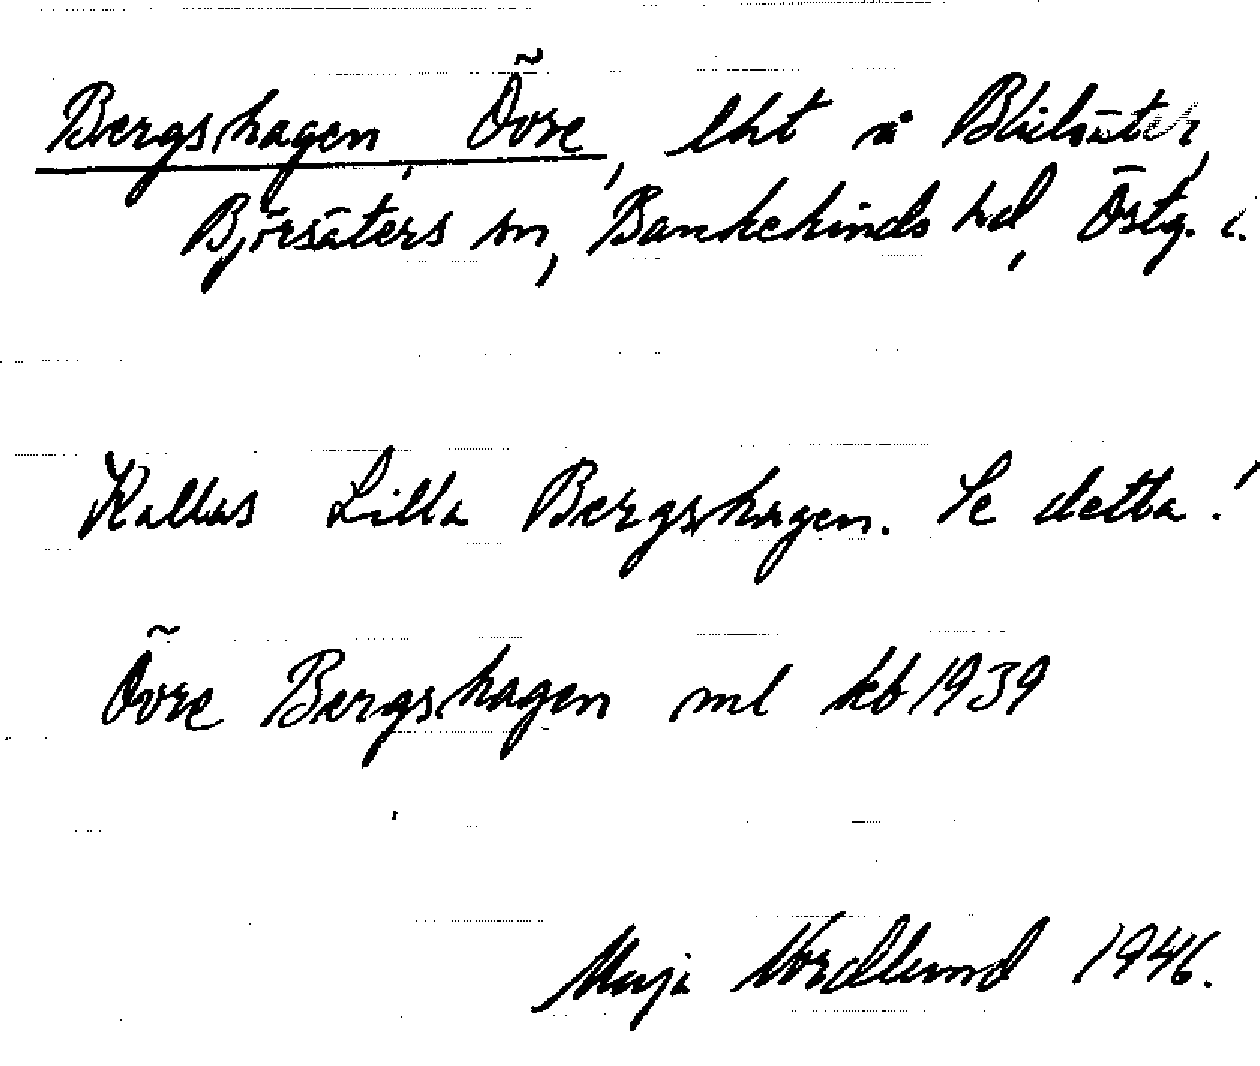 Bergshagen, Övre, lht å Bkilsäter,
Björsäters sn, Bankekinds hd, Östg. l.
Kallas Lilla Bergshagen. Se detta!
Övre Bergshagen ml kb 1939
Maja Nordlund 1946.